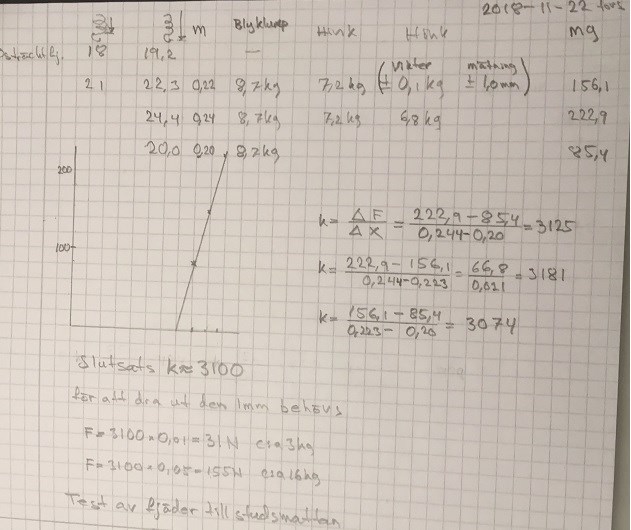 2018-11-22 tors
m Blyklump Hink Hink mg
18 19,2 —
21 22,3 0,22 8,7kg 7,2kg (vikter ± 0,1kg mätning ± 1,0mm) 156,1
24,4 0,24 8,7kg 7,2kg 6,8kg 222,9
20,0 0,20 8,7kg 85,4
200
100
k= ΔF/ΔX = 222,9-85,4/0,244-0,20 = 3125
k= 222,9-156,1/0,244-0,223 = 66,8/0,021 = 3181
k= 156,1-85,4/0,223-0,20 = 3074
Slutsats k≈3100
för att dra ut den 1mm behövs
F=3100·0,01=31N ca 3kg
F=3100·0,05=155N ca 16kg
Test av fjäder till studsmattan